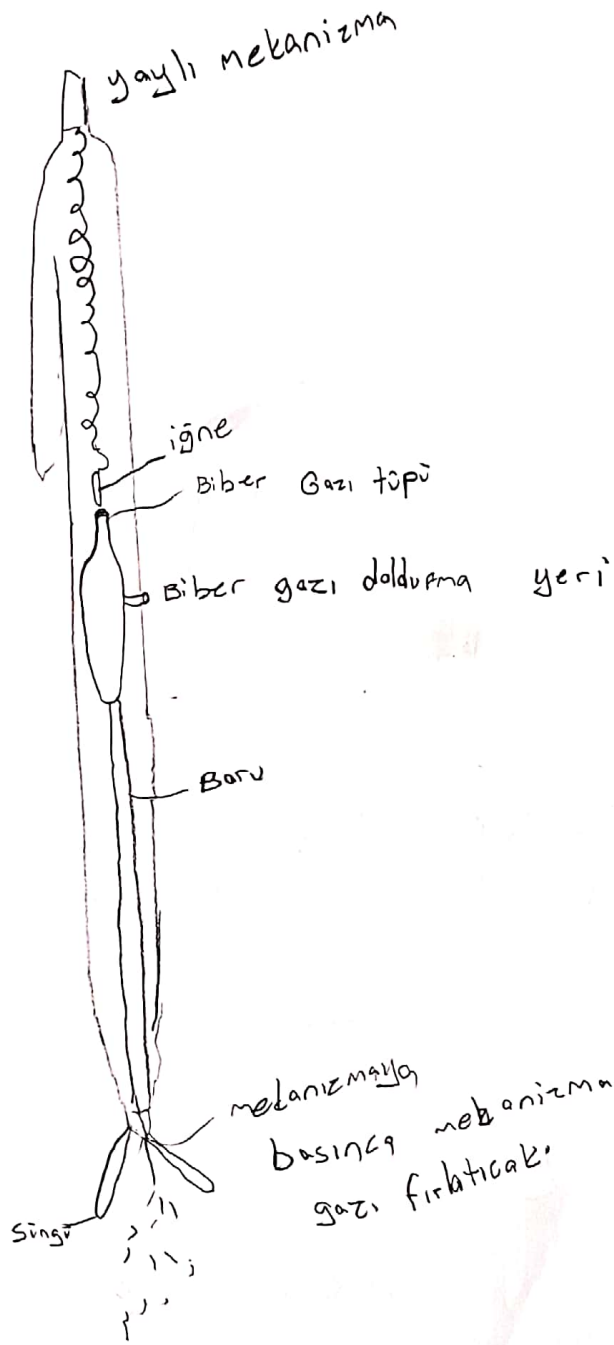 yaylı mekanizma
iğne
Biber Gazı tüpü
Biber gazı doldurma yeri
Boru
mekanizmaya
basınca mekanizma
gazı fırlatıcak.
Süngü